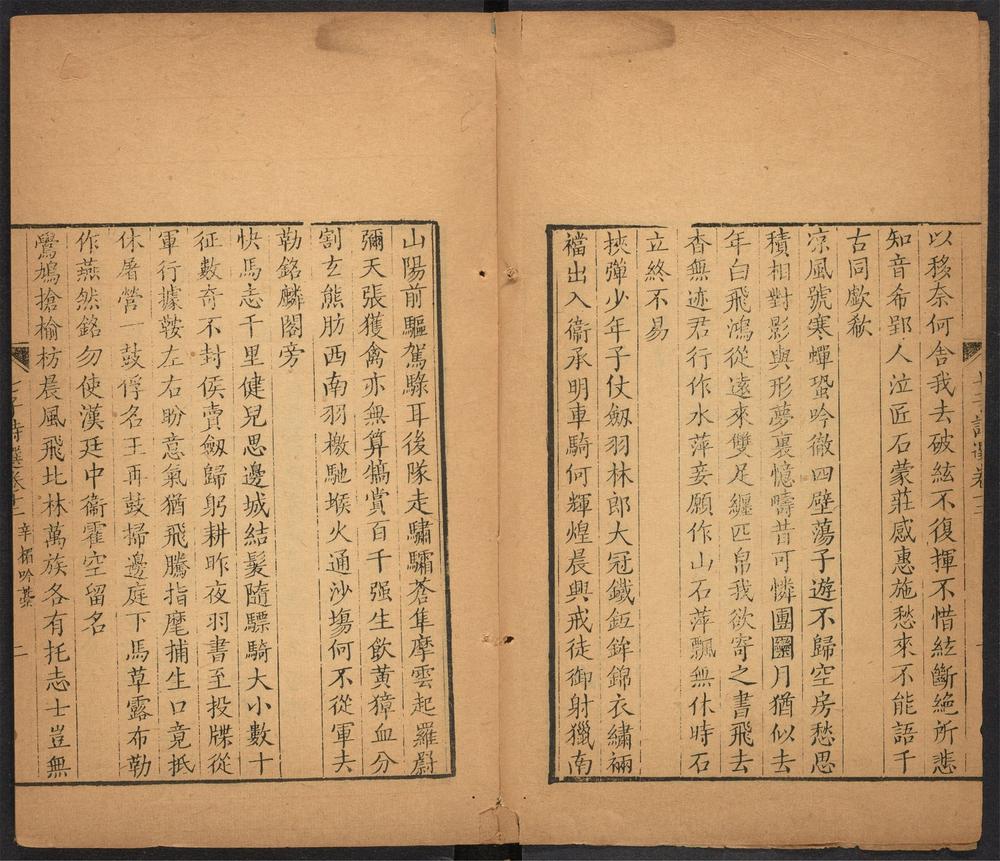 以移奈何舍我去破絃不復揮不惜絃斷絶所悲
知音希郢人泣匠石蒙莊感惠施愁來不能語千
古同歔欷
凉風號寒蟬蛩吟徹四壁蕩子遊不歸空房愁思
積相對影與形夢裏憶疇昔可憐團圞月猶似去
年白飛鴻從遠來雙足纏匹帛我欲寄之書飛去
杳無迹君行作水萍妾願作山石萍飄無休時石
立終不易
挾彈少年子仗劔羽林郎大冠鐵鉦鉾錦衣繡裲
襠出入衞承明車騎何輝煌晨興戒徒御射獵南
山陽前驅駕騄耳後隊走驌驦蒼隼摩雲起羅罻
彌天張獲禽亦無算犒賞百千强生飲黃獐血分
割玄熊肪西南羽檄馳堠火通沙塲何不從軍去
勒銘麟閣旁
快馬志千里健兒思邊城結髮隨驃騎大小數十
征數奇不封侯賣劔歸躬耕昨夜羽書至投牒從
軍行據鞍左右盼意氣猶飛騰指麾捕生口竟抵
休屠營一鼓俘名王再鼓掃邊庭下馬草露布勒
作燕然銘勿使漢廷中衞霍空留名
鷽鳩搶榆枋晨風飛北林萬族各有托志士豈無
七子詩選卷十三 辛楣吟藁 二